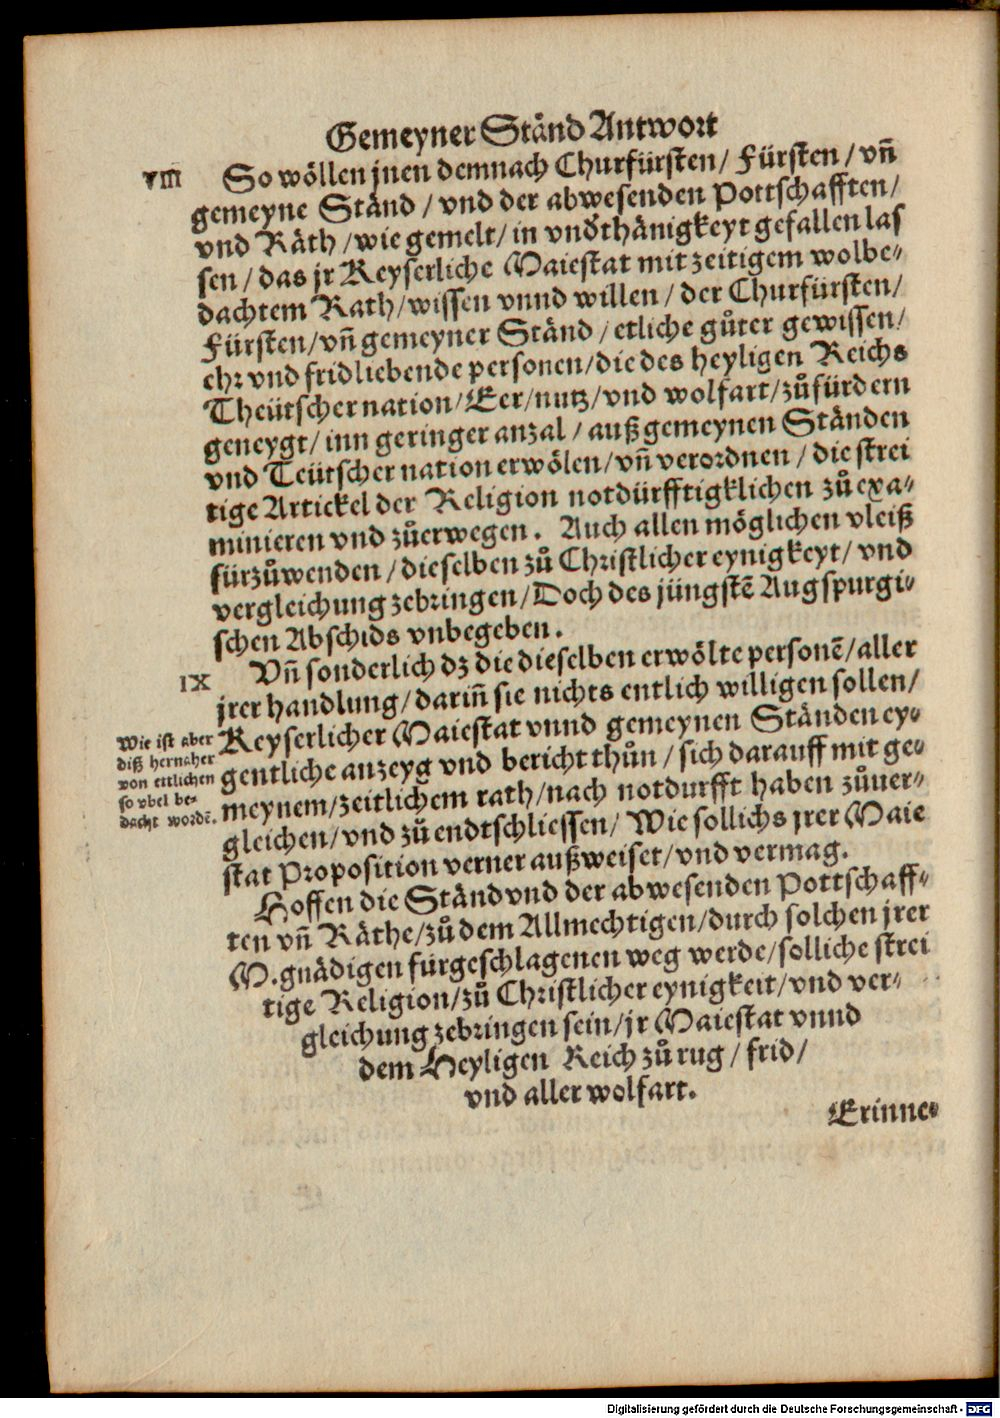 Gemeyner Ständ Antwort
VIII So wöllen jnen demnach Churfürsten/ Fürsten/ vñ
gemeyne Ständ / vnd der abwesenden Pottschafften/
vnd Räth / wie gemelt/ in vnd&#x367;thänigkeyt gefallen las
sen / das jr Keyserliche Maiestat mit zeitigem wolbe-
dachtem Rath/ wissen vnnd willen / der Churfürsten/
Fürsten/ vñ gemeyner Ständ / etliche gůter gewissen/
ehr vnd fridliebende personen/ die des heyligen Reichs
Theütscher nation/ Eer/ nutz/ vnd wolfart/ zůfürdern
geneygt/ inn geringer anzal / auß gemeynen Ständen
vnd Teütscher nation erwölen/ vñ verordnen / die strei
tige Artickel der Religion notdürfftigklichen zů exa-
minieren vnd zůerwegen. Auch allen möglichen vleiß
fürzůwenden / dieselben zů Christlicher eynigkeyt/ vnd
vergleichung zebringen/ Doch des jüngstẽ Augspurgi-
schen Abschids vnbegeben.
IX Vñ sonderlich dz die dieselben erwölte personẽ/ aller
jrer handlung/ dariñ sie nichts entlich willigen sollen/
Keyserlicher Maiestat vnnd gemeynen Ständen ey-
gentliche anzeyg vnd bericht thůn / sich darauff mit ge-
meynem/ zeitlichem rath/ nach notdurfft haben zůuer-
gleichen/ vnd zů endtschliessen/ Wie sollichs jrer Maie
stat Proposition verner außweiset/ vnd vermag.
Wie ist aber
diß hernaher
von ettlichen
so vbel be-
dacht wordẽ.
Hoffen die Ständ vnd der abwesenden Pottschaff-
ten vñ Räthe/ zů dem Allmechtigen/ durch solchen jrer
M. gnädigen fürgeschlagenen weg werde/ solliche strei
tige Religion/ zů Christlicher eynigkeit/ vnd ver-
gleichung zebringen sein/ jr Maiestat vnnd
dem Heyligen Reich zů rug / frid/
vnd aller wolfart.
Erinne-
Digitalisierung gefördert durch die Deutsche Forschungsgemeinschaft - DFG